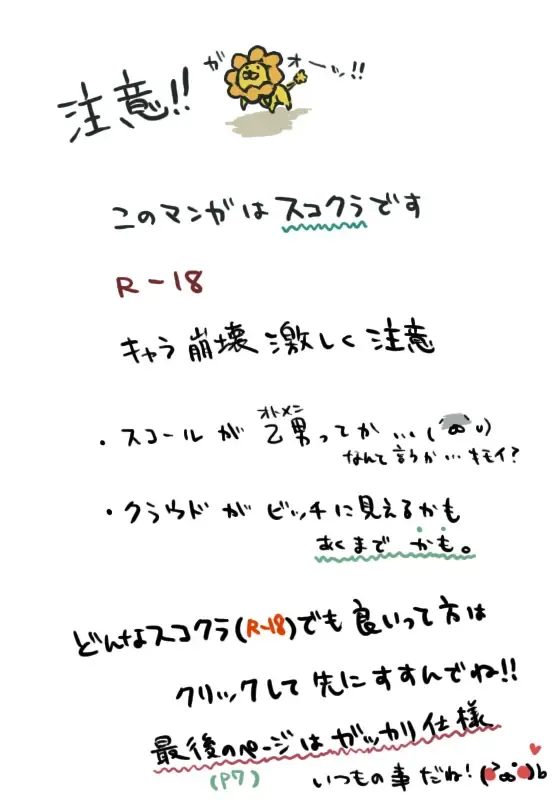 ガオーッ!!
注意!!
このマンガはスコクラです
R-18
キャラ崩壊激しく注意
・スコールが乙男ってか…(
オトメン
なんて言うか…キモイ?
・クラウドがビッチに見えるかも
あくまでかも。
どんなスコクラ(R-18)でも良いって方は
クリックして先にすすんでね!!
最後のページはガッカリ仕様
(P7)
いつもの事だね!